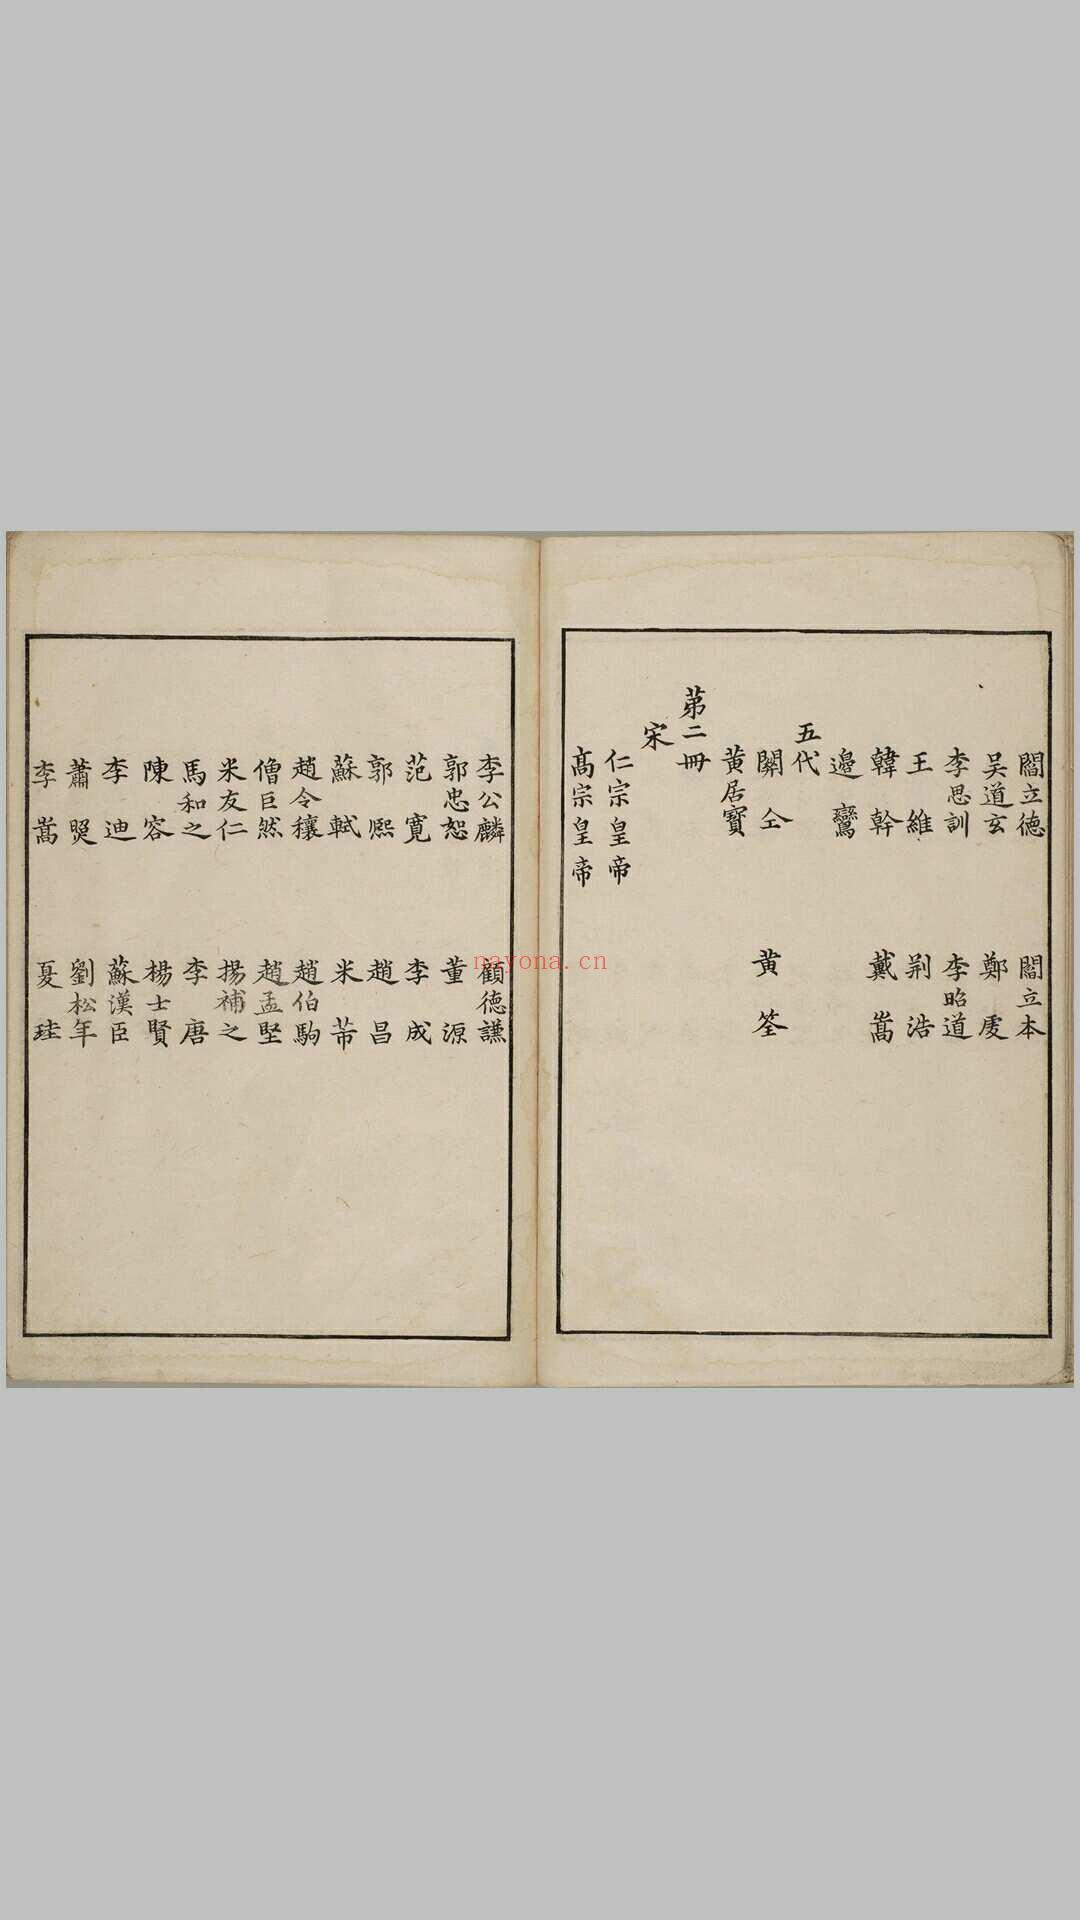 閻立德 閻立本
吴道玄 鄭虔
李思訓 李昭道
王維 荆浩
韓幹 戴嵩
邉鸞
五代
關仝 黄筌
黄居寳
苐二冊
宋
仁宗皇帝
髙宗皇帝
李公麟 顧德謙
郭忠恕 董源
范寛 李成
郭熈 趙昌
蘇軾 米芾
趙令穰 趙伯駒
僧巨然 趙孟堅
米友仁 揚補之
馬和之 李唐
陳容 楊士賢
李迪 蘇漢臣
蕭照 劉松年
李嵩 夏珪
nayona.cn